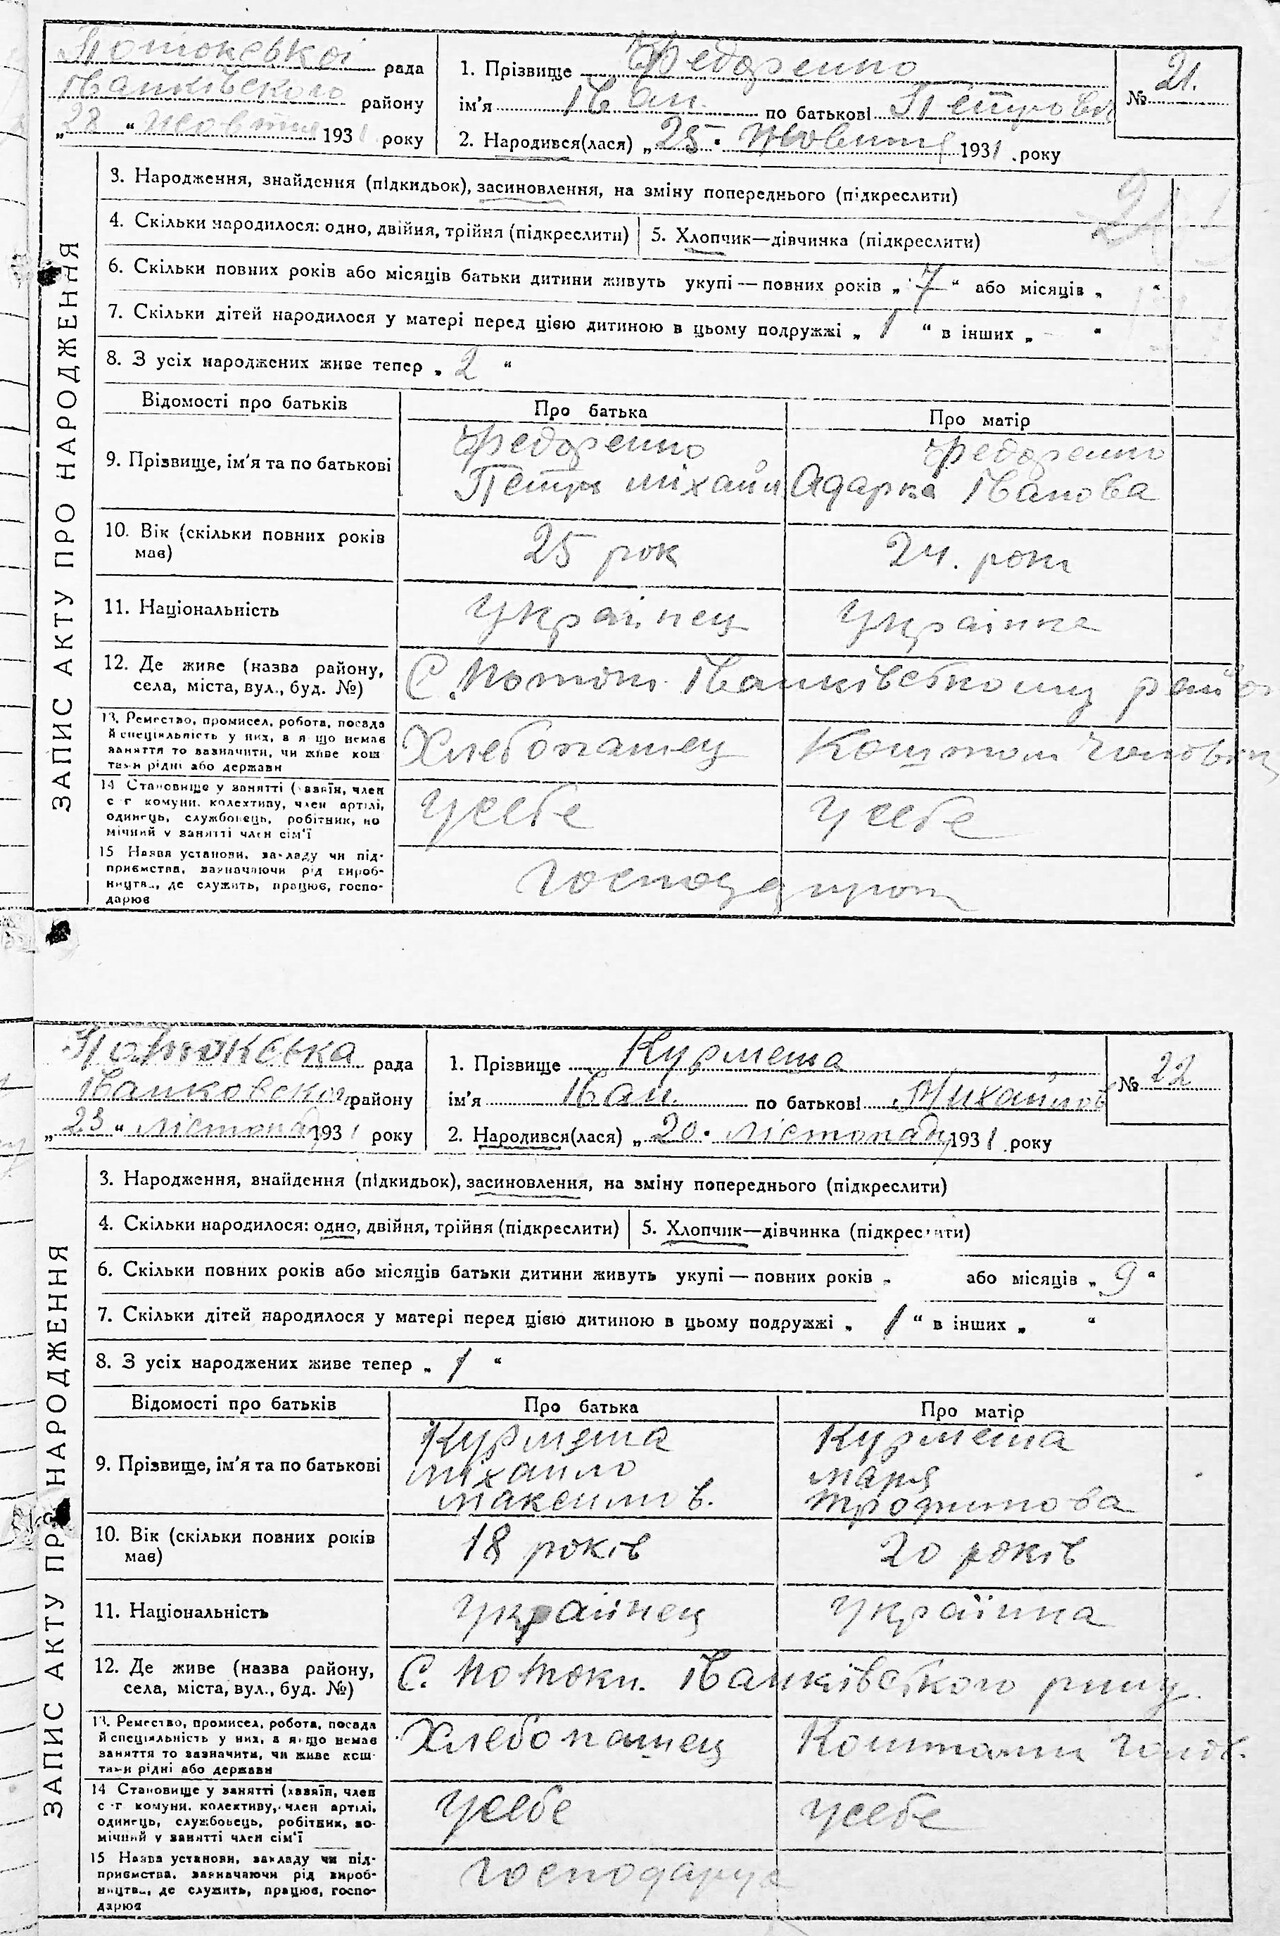 Потокської рада
Іванківського району
„28“ жовтня 1931 року
1. Прізвище Федоренко
ім'я Іван по батькові Петров
2. Народився(лася) „25. жовтня 1931. року
№ 21.
ЗАПИС АКТУ ПРО НАРОДЖЕННЯ
3. Народження, знайдення (підкидьок), засиновлення, на зміну попереднього (підкреслити)
4. Скільки народилося: одно, двійня, трійня (підкреслити) 5. Хлопчик—дівчинка (підкреслити)
6. Скільки повних років або місяців батьки дитини живуть укупі — повних років „7“ або місяців „ “
7. Скільки дітей народилося у матері перед цією дитиною в цьому подружжі „1“ в інших „ “
8. З усіх народжених живе тепер „2“
Відомості про батьків Про батька Про матір
9. Прізвище, ім'я та по батькові
Федоренко Федоренко
Петро Міхайл Одарка Іванова
10. Вік (скільки повних років
має)
25 рок 24. роки
11. Національність українец українка
12. Де живе (назва району,
села, міста, вул., буд. №)
С. Поток Іванківському район
13. Ремество, промисел, робота, посада
й спеціяльність у них, а якщо немає
заняття то зазначити, чи живе кош-
тами рідні або держави
Хлебопашец Коштом чоловік
14 Становище у занятті (хазяїн, член
с-г комуни, колективу, член артілі,
одинець, службовець, робітник, по-
мічний у занятті член сім'ї
Усебе Усебе
15 Назва установи, закладу чи під-
приємства, зазначаючи рід вироб-
ництва, де служить, працює, госпо-
дарює
Потокська рада
Іванковского району
„23“ лістопада 1931 року
1. Прізвище Курмеша
ім'я Іван по батькові Михайлов
2. Народився(лася) „20. лістопаду 1931 року
№ 22
ЗАПИС АКТУ ПРО НАРОДЖЕННЯ
3. Народження, знайдення (підкидьок), засиновлення, на зміну попереднього (підкреслити)
4. Скільки народилося: одно, двійня, трійня (підкреслити) 5. Хлопчик—дівчинка (підкреслити)
6. Скільки повних років або місяців батьки дитини живуть укупі — повних років „ або місяців „9“
7. Скільки дітей народилося у матері перед цією дитиною в цьому подружжі „1“ в інших „ “
8. З усіх народжених живе тепер „1“
Відомості про батьків Про батька Про матір
9. Прізвище, ім'я та по батькові
Курмеша Курмеша
Міхайло Маря
Максимов. Трофимова
10. Вік (скільки повних років
має)
18 років 20 років
11. Національність українец українка
12. Де живе (назва району,
села, міста, вул., буд. №)
С. Потоки Іванківського
13. Ремество, промисел, робота, посада
й спеціяльність у них, а якщо немає
заняття то зазначити, чи живе кош-
тами рідні або держави
Хлебопашец Коштами чолов.
14 Становище у занятті (хазяїн, член
с-г комуни, колективу, член артілі,
одинець, службовець, робітник, по-
мічний у занятті член сім'ї
Усебе Усебе
15 Назва установи, закладу чи під-
приємства, зазначаючи рід вироб-
ництва, де служить, працює, госпо-
дарює
господарує